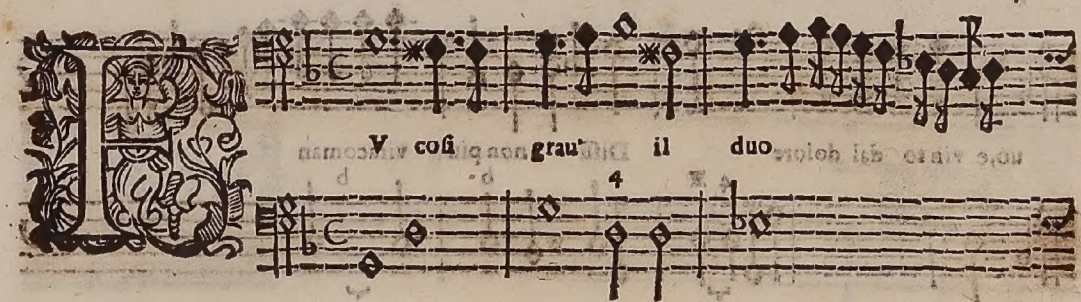 FV coſi grau' il duo
4